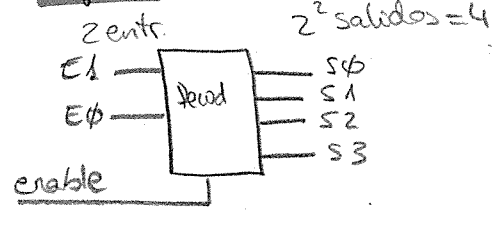 2 entr.
2² salidos = 4
E1
E0
Decod
S0
S1
S2
S3
enable